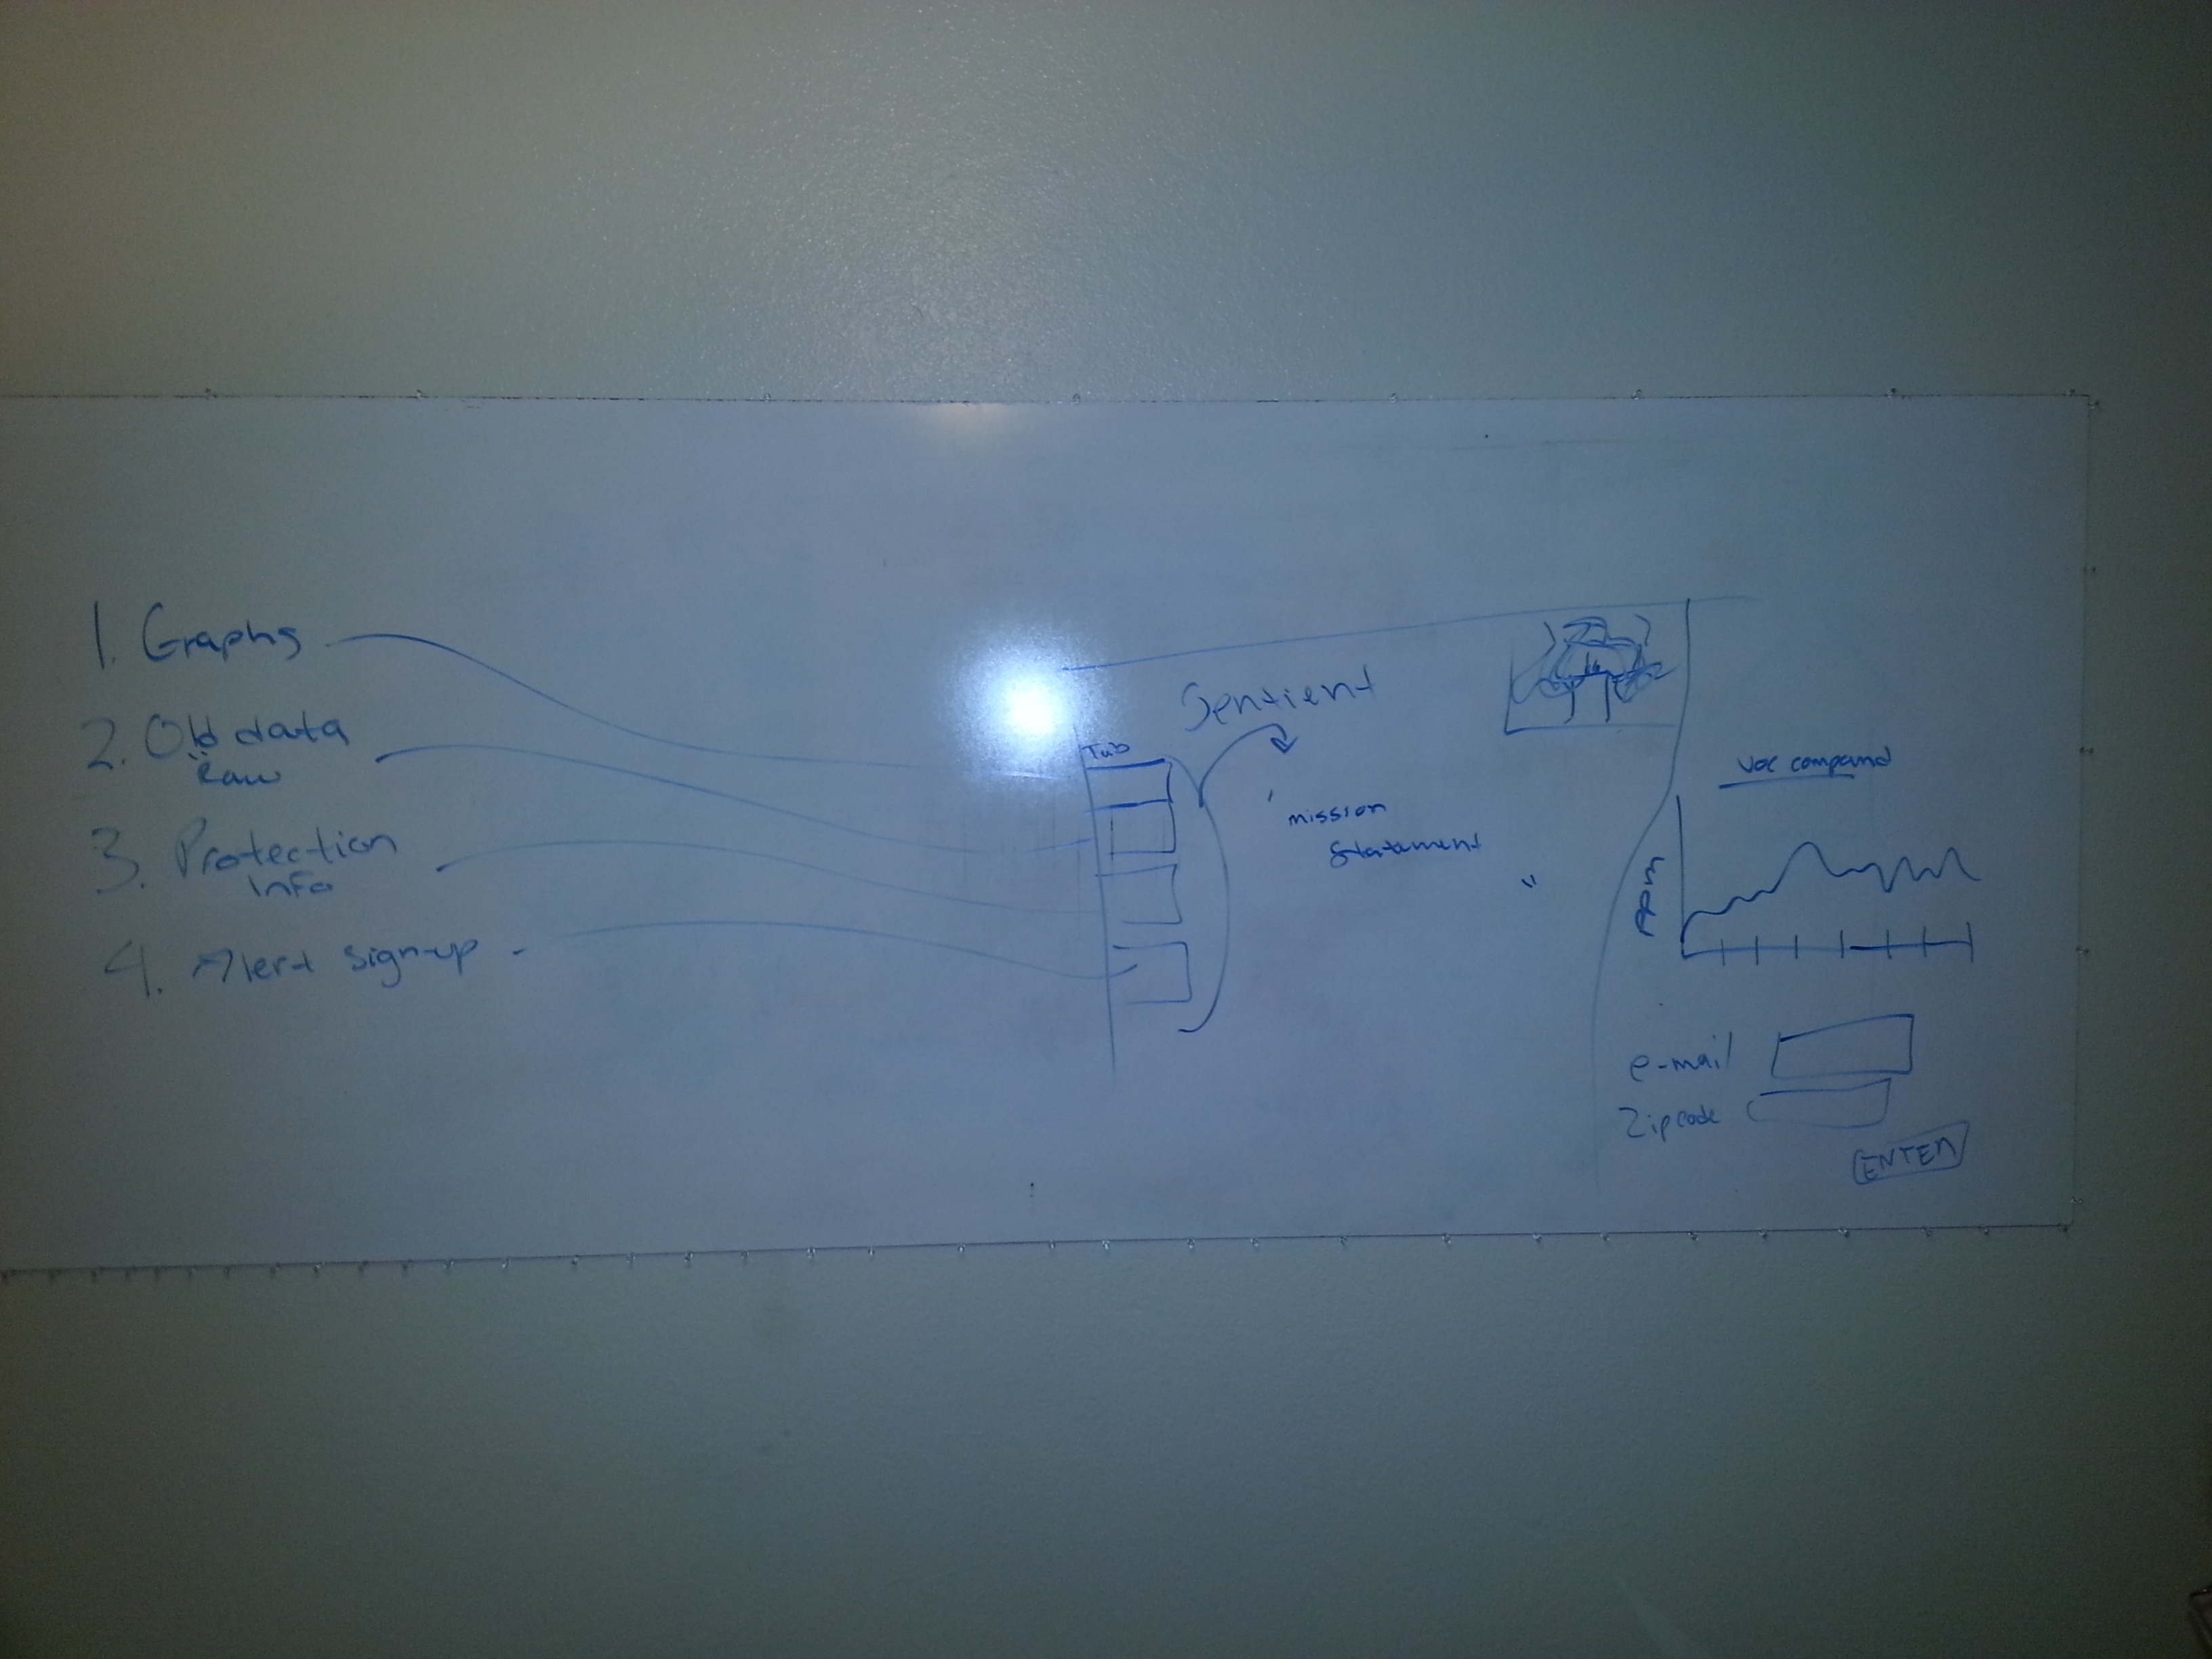 1. Graphs
2. Old data
Raw
3. Protection
Info
4. Alert sign-up -
Tab
Sentient
" mission
statement "
VOC compound
PPM
e-mail
Zipcode
ENTER